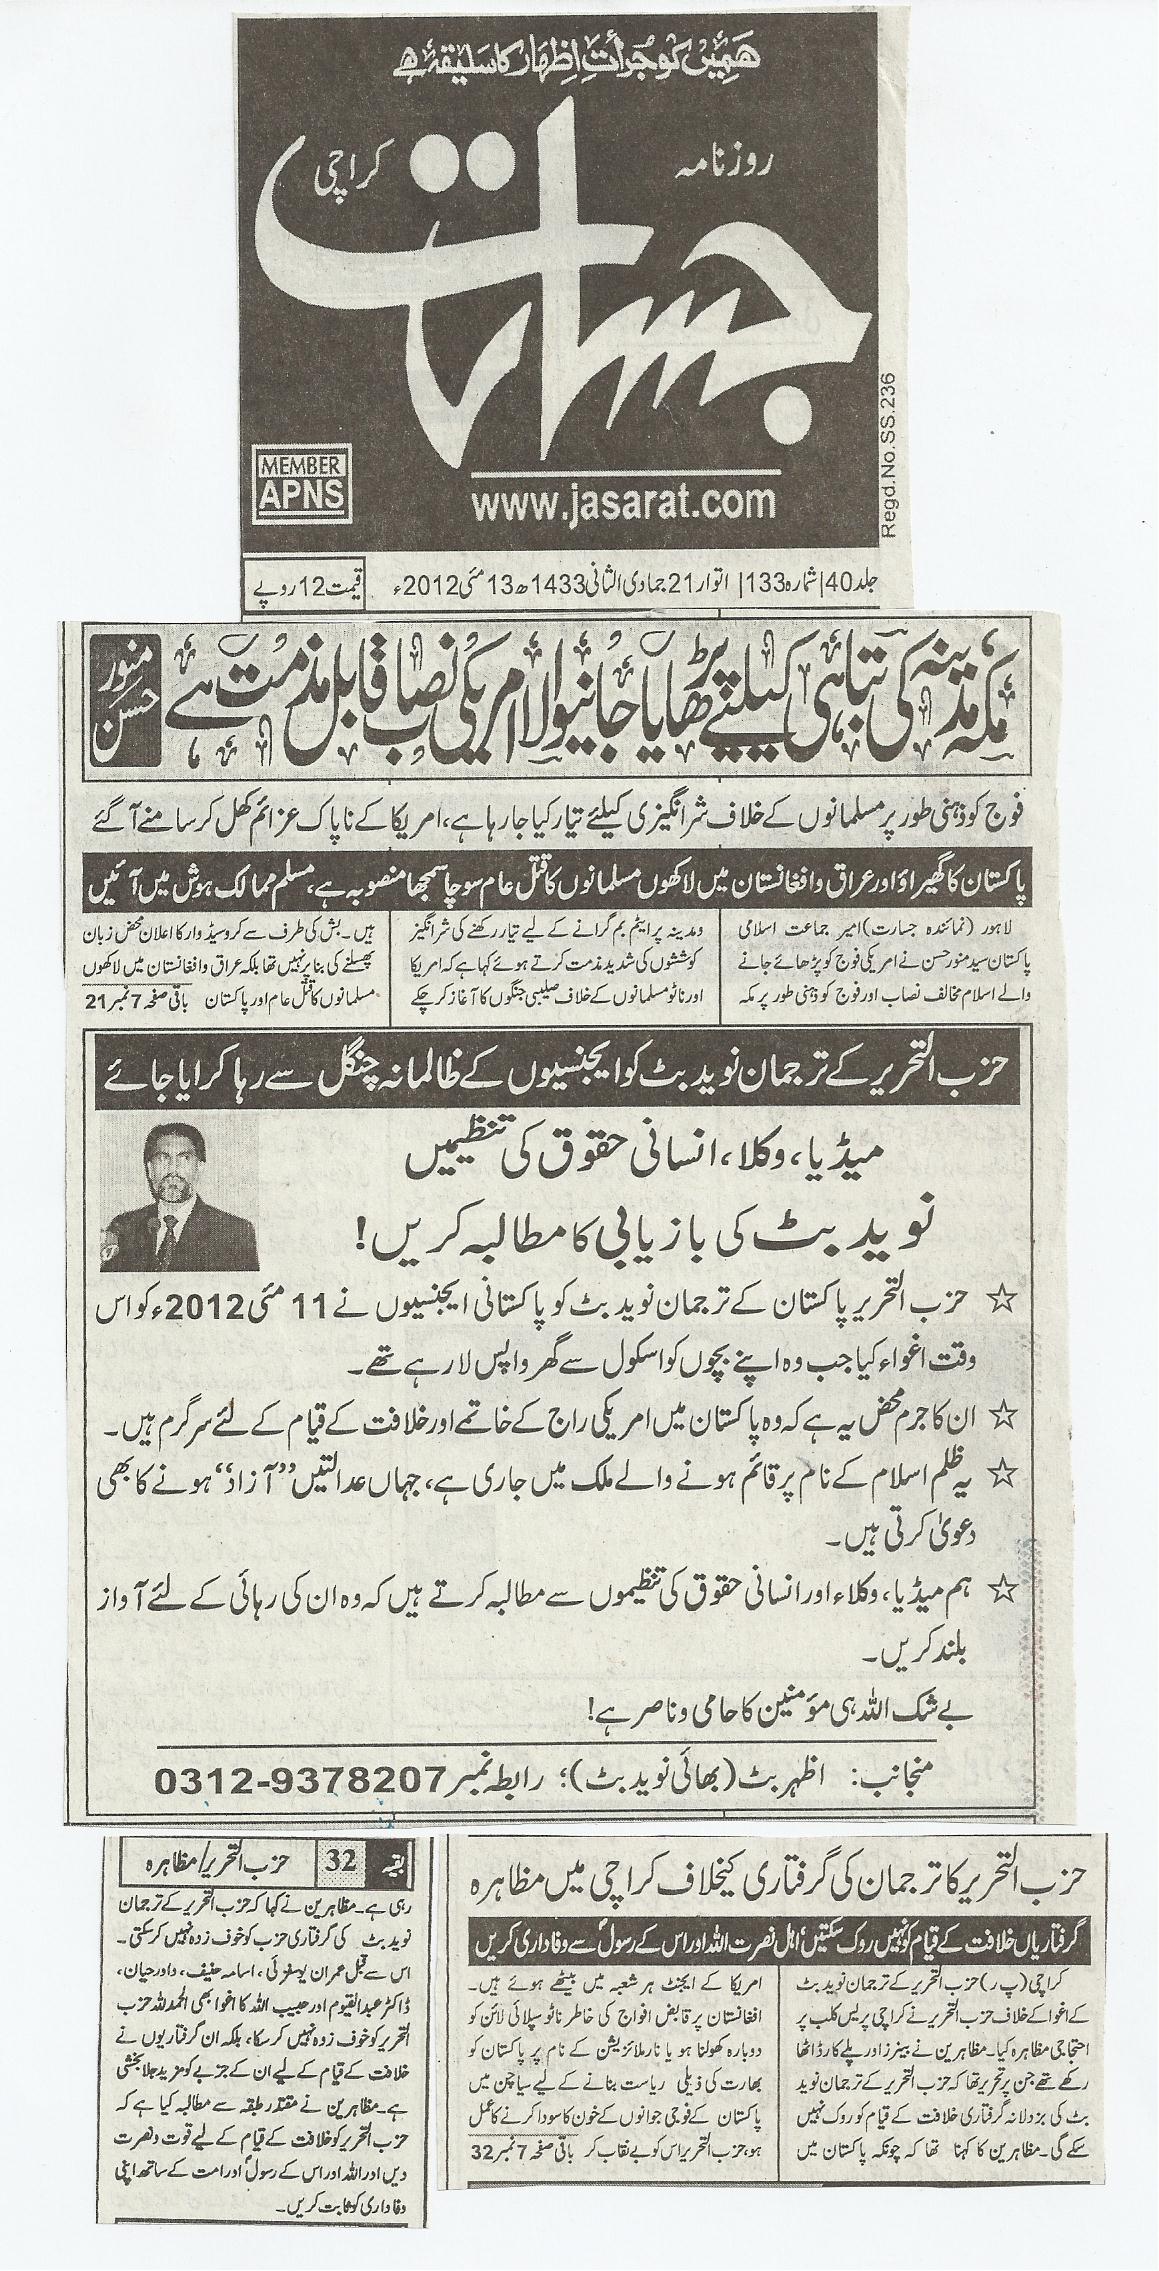 ہمیں کو جرأتِ اظہار کا سلیقہ ہے
روزنامہ
جسارت
کراچی
MEMBER
APNS
www.jasarat.com
Regd.No.SS.236
جلد40| شمارہ133| اتوار 21 جمادی الثانی 1433ھ 13 مئی 2012ء
قیمت 12 روپے
مکہ مدینہ کی تباہی کیلئے پڑھایا جانیوالا امریکی نصاب قابل مذمت ہے
منور حسن
فوج کو ذہنی طور پر مسلمانوں کے خلاف شر انگیزی کیلئے تیار کیا جا رہا ہے، امریکا کے ناپاک عزائم کھل کر سامنے آگئے
پاکستان کا گھیراؤ اور عراق و افغانستان میں لاکھوں مسلمانوں کا قتل عام سوچا سمجھا منصوبہ ہے، مسلم ممالک ہوش میں آئیں
لاہور (نمائندہ جسارت) امیر جماعت اسلامی
پاکستان سید منور حسن نے امریکی فوج کو پڑھائے جانے
والے اسلام مخالف نصاب اور فوج کو ذہنی طور پر مکہ
ومدینہ پر ایٹم بم گرانے کے لیے تیار رکھنے کی شر انگیز
کوششوں کی شدید مذمت کرتے ہوئے کہا ہے کہ امریکا
اور ناٹو مسلمانوں کے خلاف صلیبی جنگوں کا آغاز کرچکے
ہیں۔ بش کی طرف سے کروسیڈ وار کا اعلان محض زبان
پھسلنے کی بنا پر نہیں تھا بلکہ عراق و افغانستان میں لاکھوں
مسلمانوں کا قتل عام اور پاکستان باقی صفحہ 7 نمبر 21
حزب التحریر کے ترجمان نوید بٹ کو ایجنسیوں کے ظالمانہ چنگل سے رہا کرایا جائے
میڈیا، وکلا، انسانی حقوق کی تنظیمیں
نوید بٹ کی بازیابی کا مطالبہ کریں!
☆ حزب التحریر پاکستان کے ترجمان نوید بٹ کو پاکستانی ایجنسیوں نے 11 مئی 2012ء کو اس
وقت اغواء کیا جب وہ اپنے بچوں کو اسکول سے گھر واپس لا رہے تھے۔
☆ ان کا جرم محض یہ ہے کہ وہ پاکستان میں امریکی راج کے خاتمے اور خلافت کے قیام کے لئے سرگرم ہیں۔
☆ یہ ظلم اسلام کے نام پر قائم ہونے والے ملک میں جاری ہے، جہاں عدالتیں ’’آزاد‘‘ ہونے کا بھی
دعویٰ کرتی ہیں۔
☆ ہم میڈیا، وکلاء اور انسانی حقوق کی تنظیموں سے مطالبہ کرتے ہیں کہ وہ ان کی رہائی کے لئے آواز
بلند کریں۔
بے شک اللہ ہی مؤمنین کا حامی و ناصر ہے!
منجانب: اظہر بٹ (بھائی نوید بٹ)؛ رابطہ نمبر 0312-9378207
حزب التحریر کا ترجمان کی گرفتاری کیخلاف کراچی میں مظاہرہ
گرفتاریاں خلافت کے قیام کو نہیں روک سکتیں‘ اہل نصرت اللہ اور اس کے رسولؐ سے وفاداری کریں
کراچی (پ ر) حزب التحریر کے ترجمان نوید بٹ
کے اغوا کے خلاف حزب التحریر نے کراچی پریس کلب پر
احتجاجی مظاہرہ کیا۔ مظاہرین نے بینرز اور پلے کارڈ اٹھا
رکھے تھے جن پر تحریر تھا کہ حزب التحریر کے ترجمان نوید
بٹ کی بزدلانہ گرفتاری خلافت کے قیام کو روک نہیں
سکے گی۔ مظاہرین کا کہنا تھا کہ چونکہ پاکستان میں
امریکا کے ایجنٹ ہر شعبہ میں بیٹھے ہوئے ہیں۔
افغانستان پر قابض افواج کی خاطر ناٹو سپلائی لائن کو
دوبارہ کھولنا ہو یا نارملائزیشن کے نام پر پاکستان کو
بھارت کی ذیلی ریاست بنانے کے لیے سیاچن میں
پاکستان کے فوجی جوانوں کے خون کا سودا کرنے کا عمل
ہو، حزب التحریر اس کو بے نقاب کر باقی صفحہ 7 نمبر 32
بقیہ 32 حزب التحریر/ مظاہرہ
رہی ہے۔ مظاہرین نے کہا کہ حزب التحریر کے ترجمان
نوید بٹ کی گرفتاری حزب کو خوف زدہ نہیں کرسکتی۔
اس سے قبل عمران یوسفزئی، اسامہ حنیف، داور حیان،
ڈاکٹر عبدالقیوم اور حبیب اللہ کا اغوا بھی الحمدللہ حزب
التحریر کو خوف زدہ نہیں کر سکا، بلکہ ان گرفتاریوں نے
خلافت کے قیام کے لیے ان کے جزبے کو مزید جلا بخشی
ہے۔ مظاہرین نے مقتدر طبقہ سے مطالبہ کیا ہے کہ
حزب التحریر کو خلافت کے قیام کے لیے قوت و نصرت
دیں اور اللہ اور اس کے رسولؐ اور امت کے ساتھ اپنی
وفاداری کو ثابت کریں۔